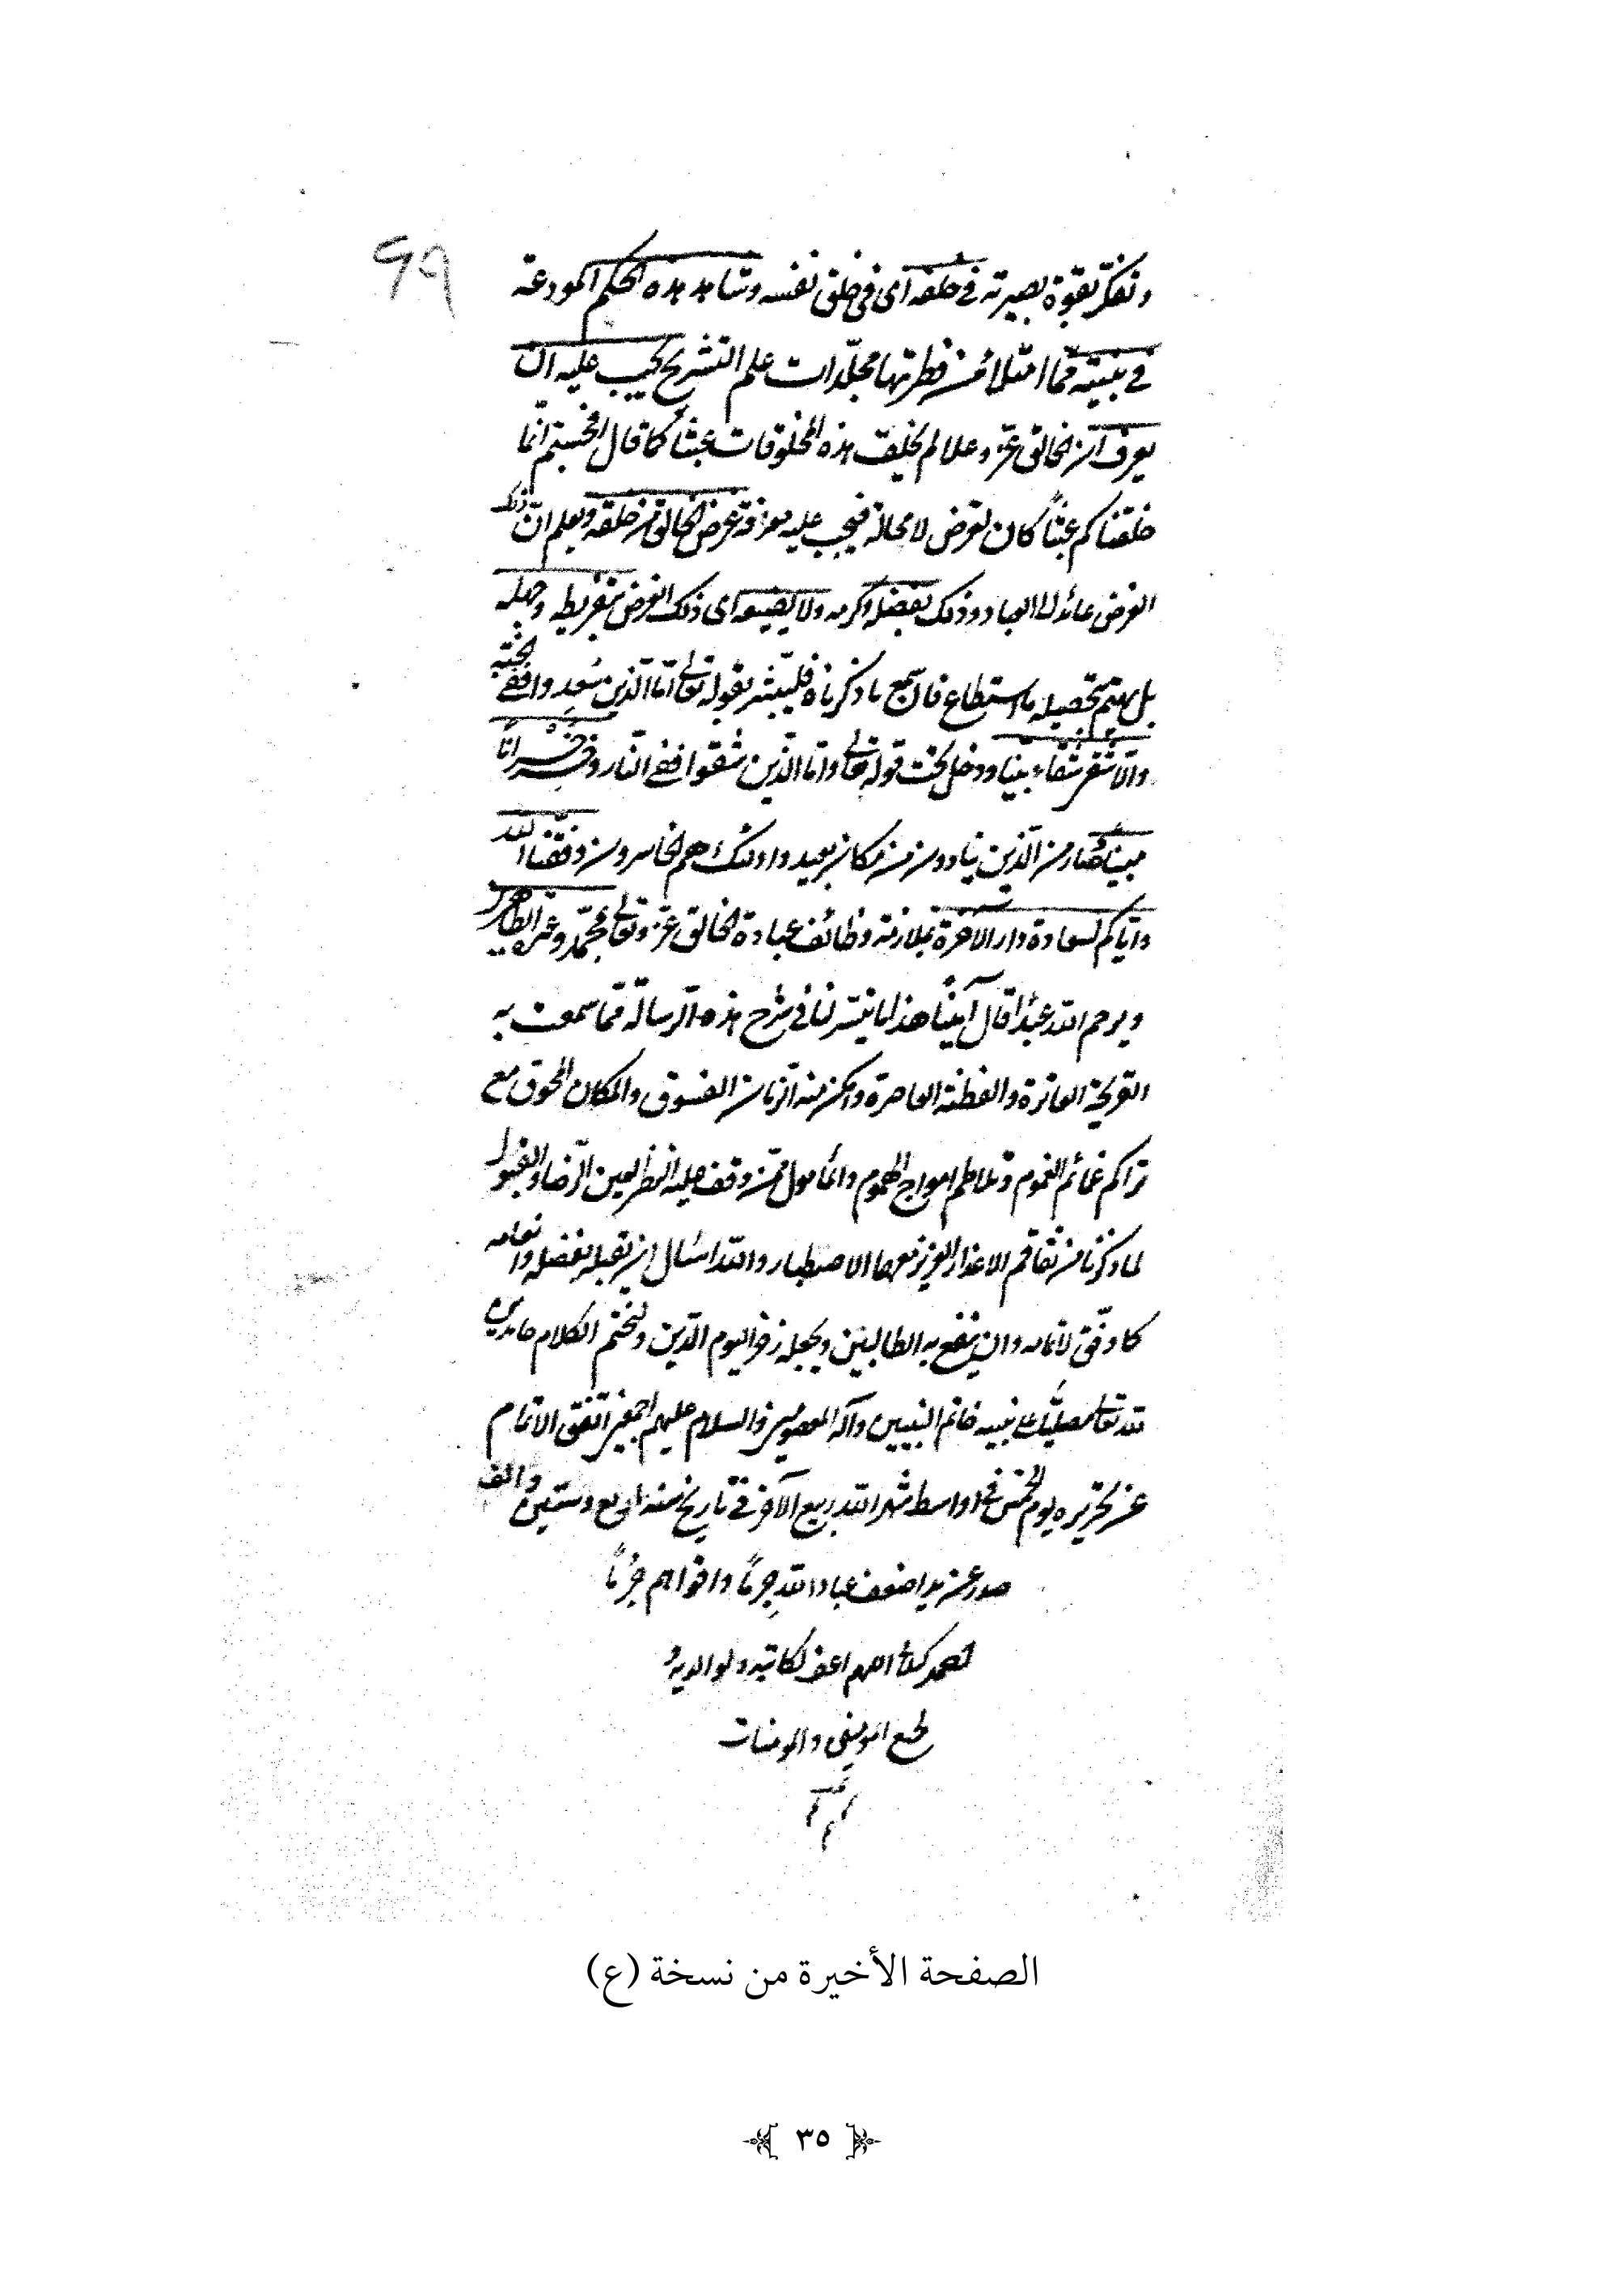 ٩٩
وتفكّر بقوة بصيرته في خلقه اى في خلق نفسه وشاهد هذه الحكم المودعة
في بنيته ممّا امتلأ من فطرتها مجلّدات علم التشريح يجب عليه ان
يعرف ان الخالق عزّ وعلا لم يخلق هذه المخلوقات عبثاً كما قال افحسبتم انّما
خلقناكم عبثاً كان لغرض لا محالة فيجب عليه معرفة غرض الخالق من خلقه ويعلم انّ ذلك
الغرض عائد الى العباد وذلك بفضله وكرمه ولا يضيعه اى ذلك الغرض بتفريطه وجهله
بل يهتم بتحصيله ما استطاع فان سمع ما ذكرناه فليبشر بقوله تعالى امّا الّذين سُعِدوا ففي الجنّة
والّا شقى شقاء بيّنا ودخل تحت قوله تعالى وامّا الّذين شقوا ففي النّار وخسر خسراناً
مبيناً فصار من الّذين ينادون من مكان بعيد واولئك هم الخاسرون وفّقنا الله
وايّاكم لسعادة دار الآخرة بملازمة وظائف عبادة الخالق عزّ وتعالى بمحمّد وعترته الطاهرين
ويرحم الله عبداً قال آميناً هذا ما تيسّر لنا في شرح هذه الرسالة ممّا سمعت به
القريحة الفاترة والفطنة القاصرة وامكن منه الزمان الفسوق والمكان المحوق مع
تراكم غمائم الغموم وتلاطم امواج الهموم والمأمول ممّن وقف عليه النظر بعين الرّضا والقبول
لما ذكرنا من تفاقم الاعذار العزيز معها الاصطبار والله اسئال ان يقبله بفضله وانعامه
كما وفّق لاتمامه وان ينفع به الطالبين ويجعله ذخراً ليوم الدّين ولنختم الكلام حامدين
لله تعالى مصلّيا على نبيه خاتم النبيين وآله المعصومين والسلام عليهم اجمعين اتّفق الاتمام
عن تحريره يوم الخميس في اواسط شهر الله ربيع الآخر في تاريخ سنة اربع وستين والف
صدر عن يد اضعف عباد الله جِرماً واقواهم جُرماً
اللهم اغفر لكاتبه ولوالديه و
لجميع المومنين والمومنات
الصفحة الأخيرة من نسخة (ع)
٣٥